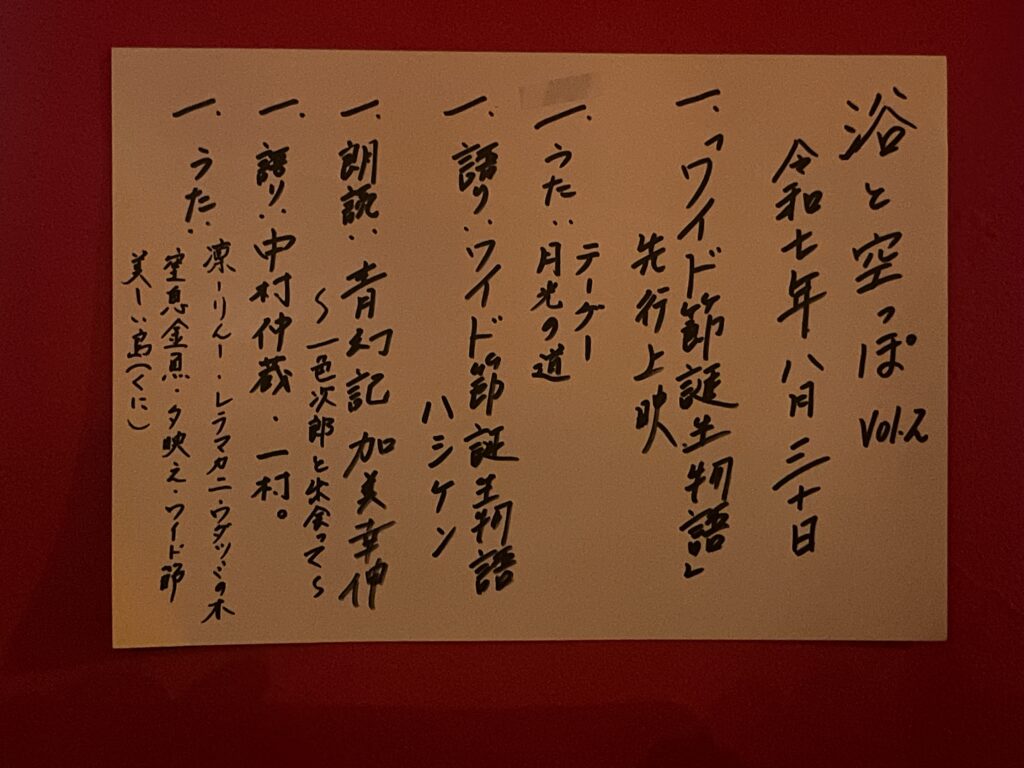 浴と空っぽ vol.2
令和七年八月三十日
一、「ワイド節誕生物語」
先行上映
一、うた：テーゲー
月光の道
一、語り：ワイド節誕生物語
ハシケン
一、朗読：青幻記 加美幸伸
〜一色次郎と出会って〜
一、語り：中村仲蔵・一村。
一、うた：凛ーりんー・レラマカニ・ウダツミの木
窒息金魚・夕映え・ワイド節
美しい島（くに）